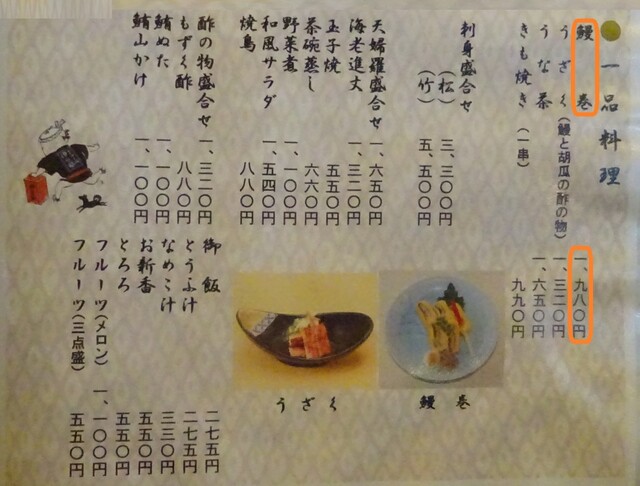 一品料理
鰻巻 一、九八〇円
うざく(鰻と胡瓜の酢の物) 一、三二〇円
うな茶 一、六五〇円
きも焼き(一串) 九九〇円
刺身盛合せ
(松) 三、三〇〇円
(竹) 五、五〇〇円
天婦羅盛合せ 一、六五〇円
海老進丈 一、三二〇円
玉子焼 五五〇円
茶碗蒸し 六六〇円
野菜煮 一、一〇〇円
和風サラダ 一、五四〇円
焼鳥 八八〇円
酢の物盛合せ 一、三二〇円
もずく酢 八八〇円
鮪ぬた 一、一〇〇円
鮪山かけ 一、一〇〇円
鰻巻
うざく
御飯 二七五円
とうふ汁 二七五円
なめこ汁 三三〇円
お新香 五五〇円
とろろ 五五〇円
フルーツ(メロン) 一、一〇〇円
フルーツ(三点盛) 五五〇円